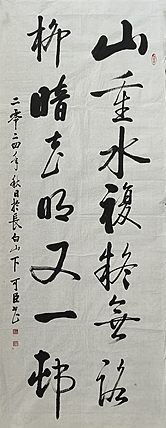 山重水複疑無路
柳暗花明又一邨
二零二四年秋日於長白山下 可臣书